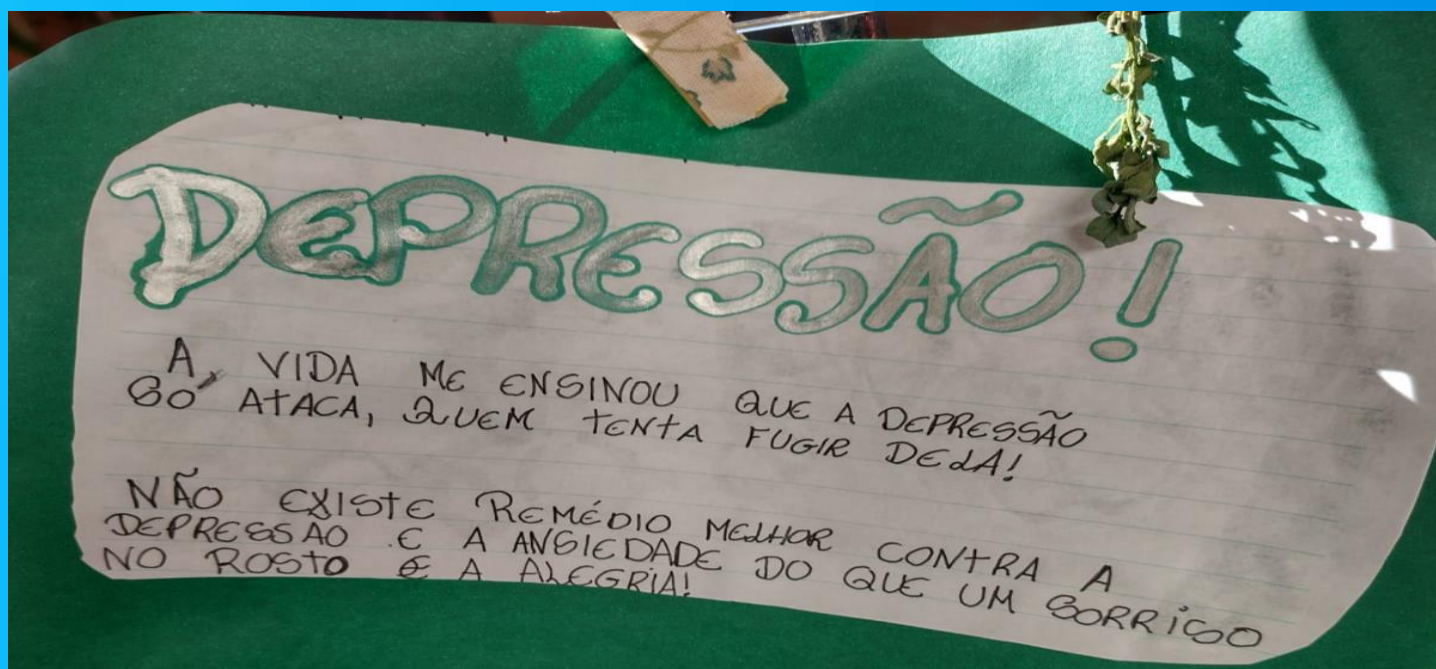 DEPRESSÃO!
A VIDA ME ENSINOU QUE A DEPRESSÃO
SÓ ATACA, QUEM TENTA FUGIR DELA!
NÃO EXISTE REMÉDIO MELHOR CONTRA A
DEPRESSAO E A ANSIEDADE DO QUE UM SORRISO
NO ROSTO E A ALEGRIA!